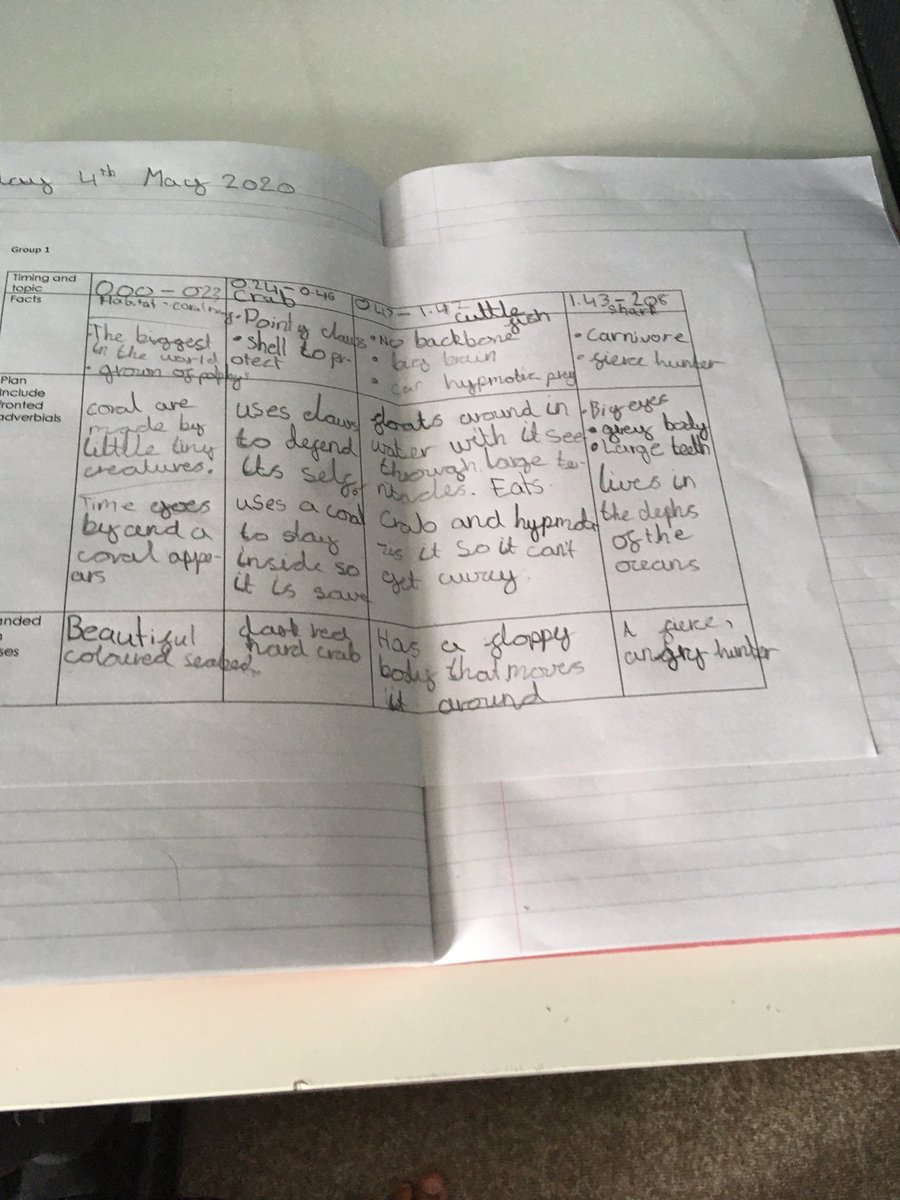 day 4th May 2020
Group 1
Timing and
topic
000 - 023
0.24 - 0.46
Crab
0.47 - 1.42 cuttle
fish
1.43 - 208
shark
Facts
Habitat -
The biggest
in the world
• grown of
• Pointy claws
• Shell to pr-
otect
• No backbone
• big brain
• can hypmotic prey
• Carnivore
• fierce hunter
Plan
include
fronted
adverbials
coral are
made by
little tiny
creatures.
Time goes
by and a
coral appe-
ars
uses claws
to defend
its self
uses a coral
to stay
inside so
it is save
floats around in
water with it see
through, large te-
ntacles. Eats
crab and hypmot
izes it so it can't
get away.
• Big eyes
• grey body
• Large teeth
lives in
the dephs
of the
oceans
anded
ses
Beautiful
coloured seabed
dark red
hard crab
Has a floppy
body that moves
it around
A fierce,
angry hunter